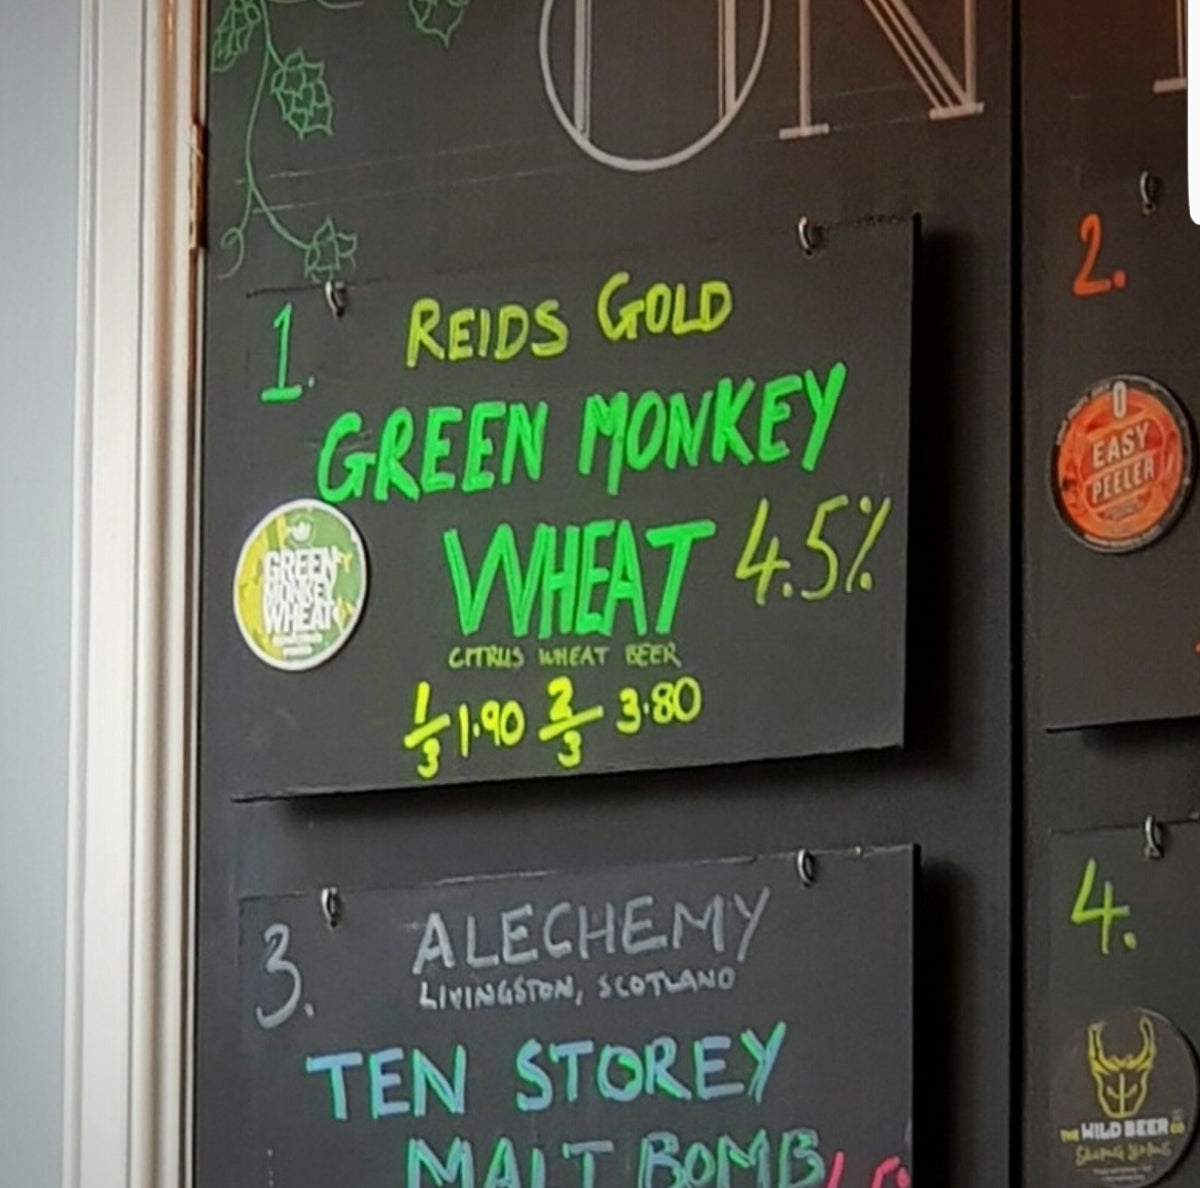 ON
1.
REIDS GOLD
GREEN MONKEY
WHEAT 4.5%
CITRUS WHEAT BEER
1/3 1.90 2/3 3.80
GREEN
MONKEY
WHEAT
2.
EASY
PEELER
3.
ALECHEMY
LIVINGSTON, SCOTLAND
TEN STOREY
MALT BOMB
4.
THE WILD BEER CO